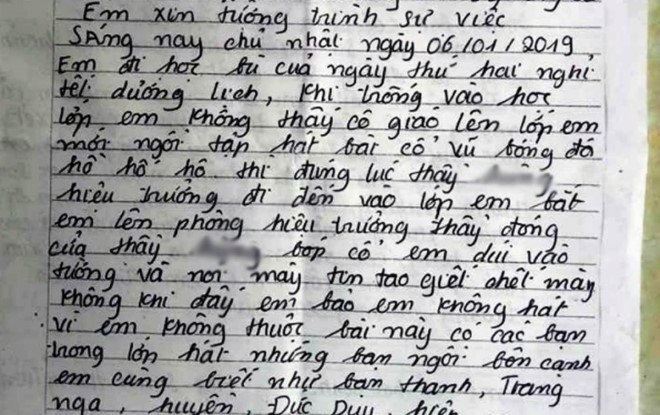 Em xin tường trình sự việc
SÁng nay chủ nhật ngày 06/01/2019,
Em đi học bù của ngày thứ hai nghỉ
tết dương lịch, khi trống vào học
lớp em không thấy cô giáo lên lớp em
mới ngồi tập hát bài cổ vũ bóng đá
hồ hố hô thì đúng lúc thầy
hiệu trưởng đi đến vào lớp em bắt
em lên phòng hiệu trưởng thầy đóng
cửa thầy bóp cổ em dúi vào
tường và nói mày tin tao giết chết mày
không khi đấy em bảo em không hát
vì em không thuộc bài này có các bạn
trong lớp hát những bạn ngồi bên cạnh
em cũng biết như bạn thanh, Trang
nga, huyền, Đức Duy, hiên